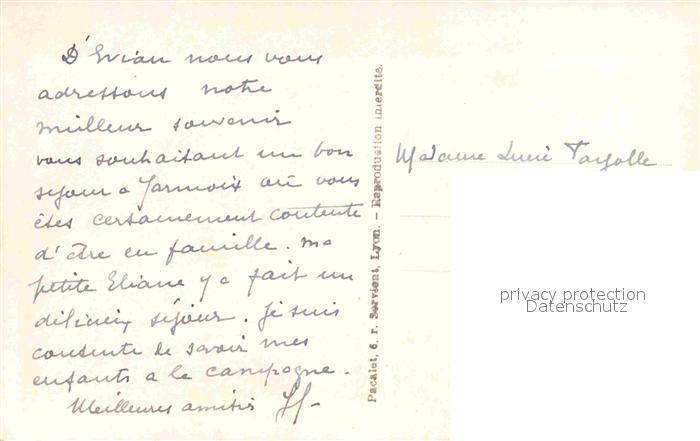 D'Evian nous vous
adressons notre
meilleur souvenir
vous souhaitant un bon
sejour a Jarnioix où vous
êtes certainement contente
d'être en famille. ma
petite Eliane y a fait un
délicieux séjour. Je suis
contente de savoir mes
enfants a la campagne.
Meilleures amitiés
Pacalet, 6, r. Servient, Lyon. - Reproduction interdite.
Madame Lucie
privacy protection
Datenschutz